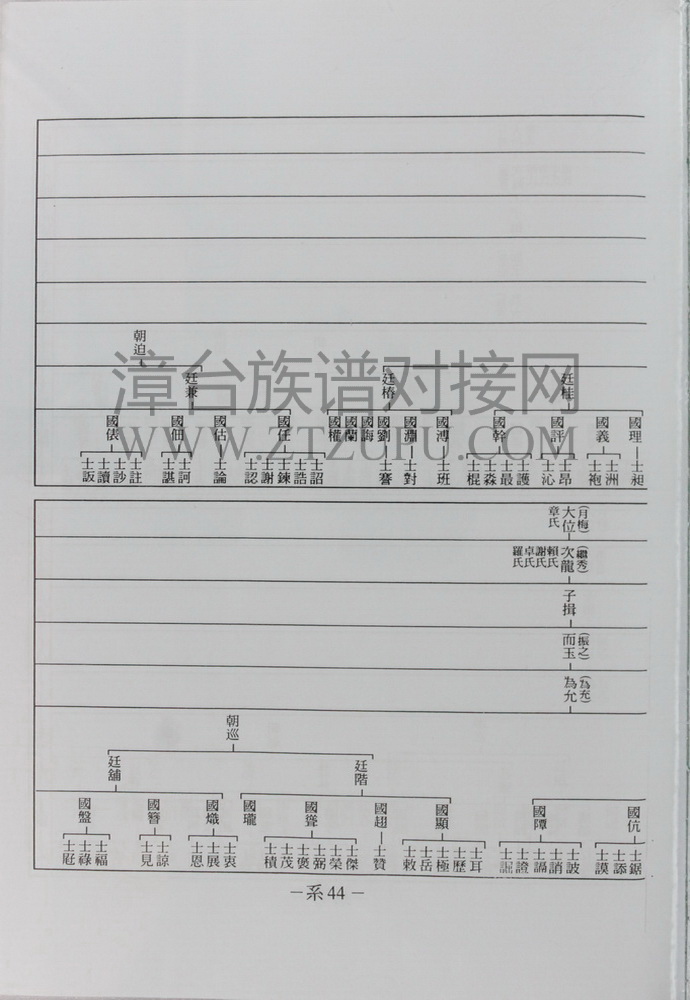 朝迫
廷桂
廷椿
廷兼
國理
國義
國評
國幹
國溥
國淵
國劉
國海
國蘭
國權
國任
國估
國佃
國俵
士昶
士洲
士袍
士昂
士沁
士護
士最
士淼
士棍
士班
士對
士謇
士詔
士誥
士鍊
士謝
士認
士論
士訶
士諶
士註
士訬
士讀
士訪
漳台族谱对接网
WWW.ZTZUPU.COM
(月梅)
大位
章氏
(繼秀)
次龍
賴氏
謝氏
卓氏
羅氏
子揖
(振之)
而玉
(為充)
為允
朝巡
廷階
廷舖
國伉
國障
國顯
國趄
國聳
國瓏
國熾
國簪
國盤
士鋸
士添
士謨
士詖
士誚
士證
士耳
士歷
士極
士岳
士敕
士贊
士傑
士榮
士弼
士褒
士茂
士積
士衷
士展
士恩
士諒
士見
士福
士祿
士旺
－系 44－